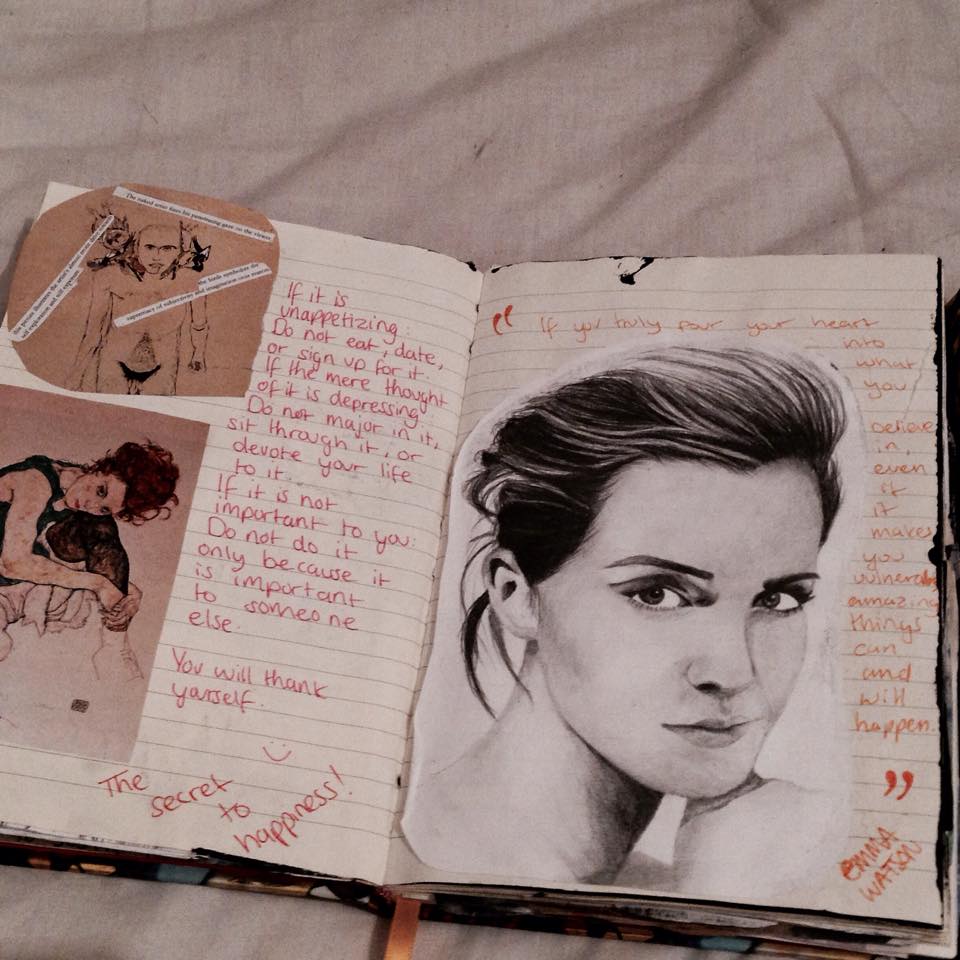 The naked artist fixes his penetrating gaze on the viewer
the birds symbolize the
supremacy of subjectivity and imagination over
self exploration and self
If it is
unappetizing:
Do not eat, date,
or sign up for it.
If the mere thought
of it is depressing:
Do not major in it,
sit through it, or
devote your life
to it.
If it is not
important to you:
Do not do it
only because it
is important
to someone
else.
You will thank
yourself.
The
secret
to
happiness!
“ If you truly pour your heart
into
what
you
believe
in,
even
if
it
makes
you
vulnerable,
amazing
things
can
and
will
happen.
”
EMMA
WATSON